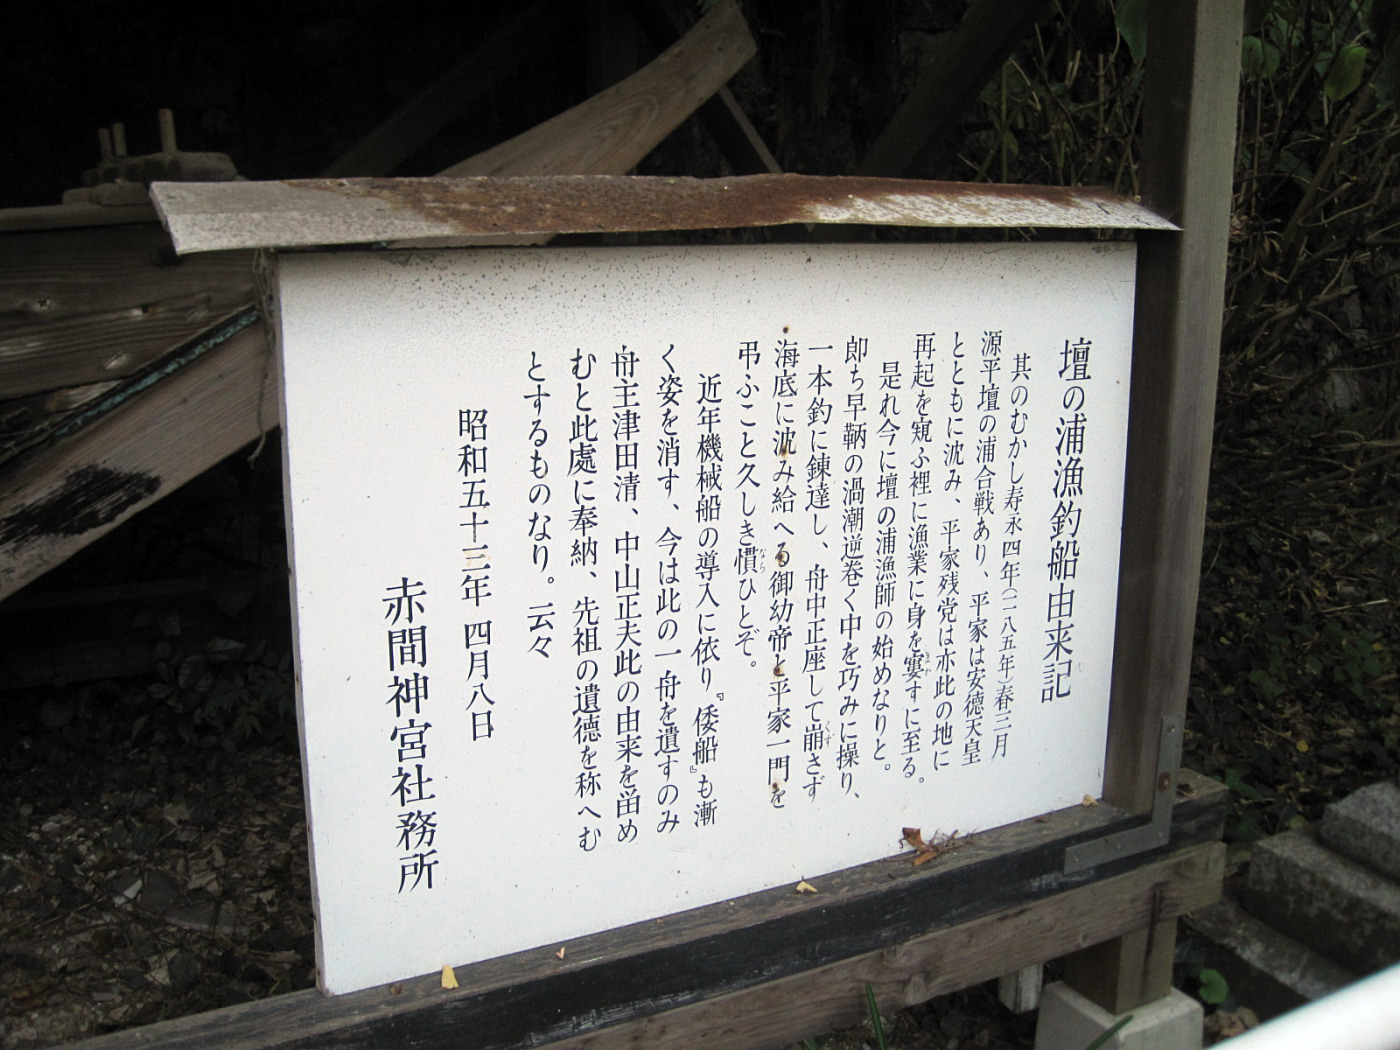 壇の浦漁釣船由来記
其のむかし寿永四年(一一八五年)春三月
源平壇の浦合戦あり、平家は安德天皇
とともに沈み、平家残党は亦此の地に
再起を窺ふ裡に漁業に身を窶すに至る。
是れ今に壇の浦漁師の始めなりと。
即ち早鞆の渦潮逆巻く中を巧みに操り、
一本釣に錬達し、舟中正座して崩さず
海底に沈み給へる御幼帝と平家一門を
弔ふこと久しき慣ひとぞ。
近年機械船の導入に依り『倭船』も漸
く姿を消す、今は此の一舟を遺すのみ
舟主津田清、中山正夫此の由来を留め
むと此處に奉納、先祖の遺徳を称へむ
とするものなり。云々
昭和五十三年 四月八日
赤間神宮社務所